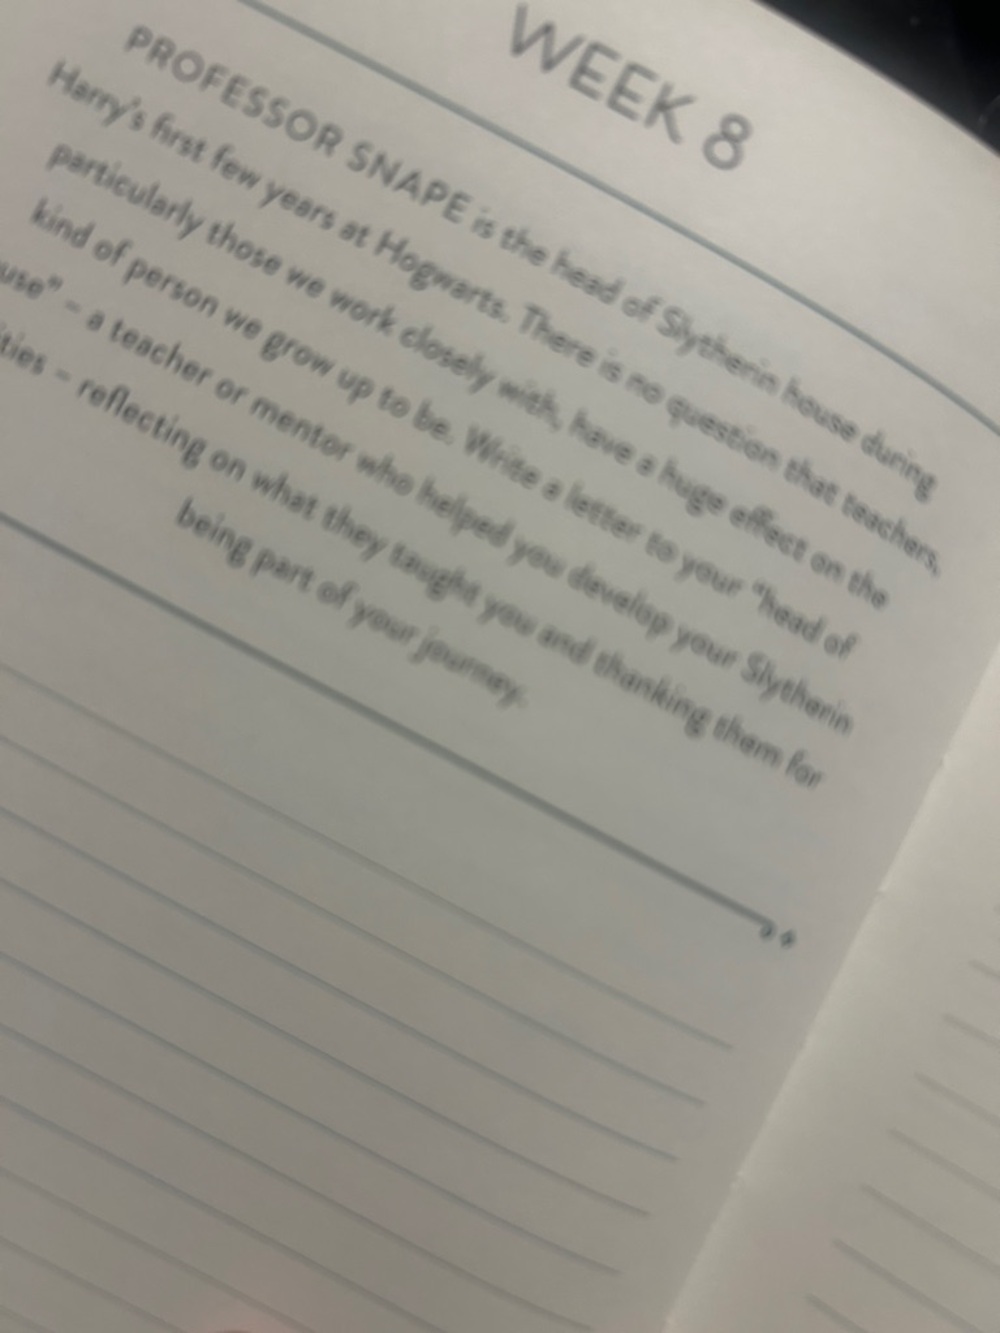 WEEK 8
PROFESSOR SNAPE is the head of Slytherin house during
Harry's first few years at Hogwarts. There is no question that teachers,
particularly those we work closely with, have a huge effect on the
kind of person we grow up to be. Write a letter to your "head of
use" – a teacher or mentor who helped you develop your Slytherin
ities – reflecting on what they taught you and thanking them for
being part of your journey.